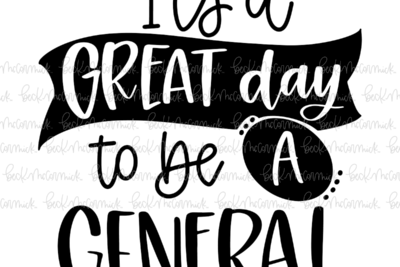 It's a
GREAT day
to be A
GENERAL